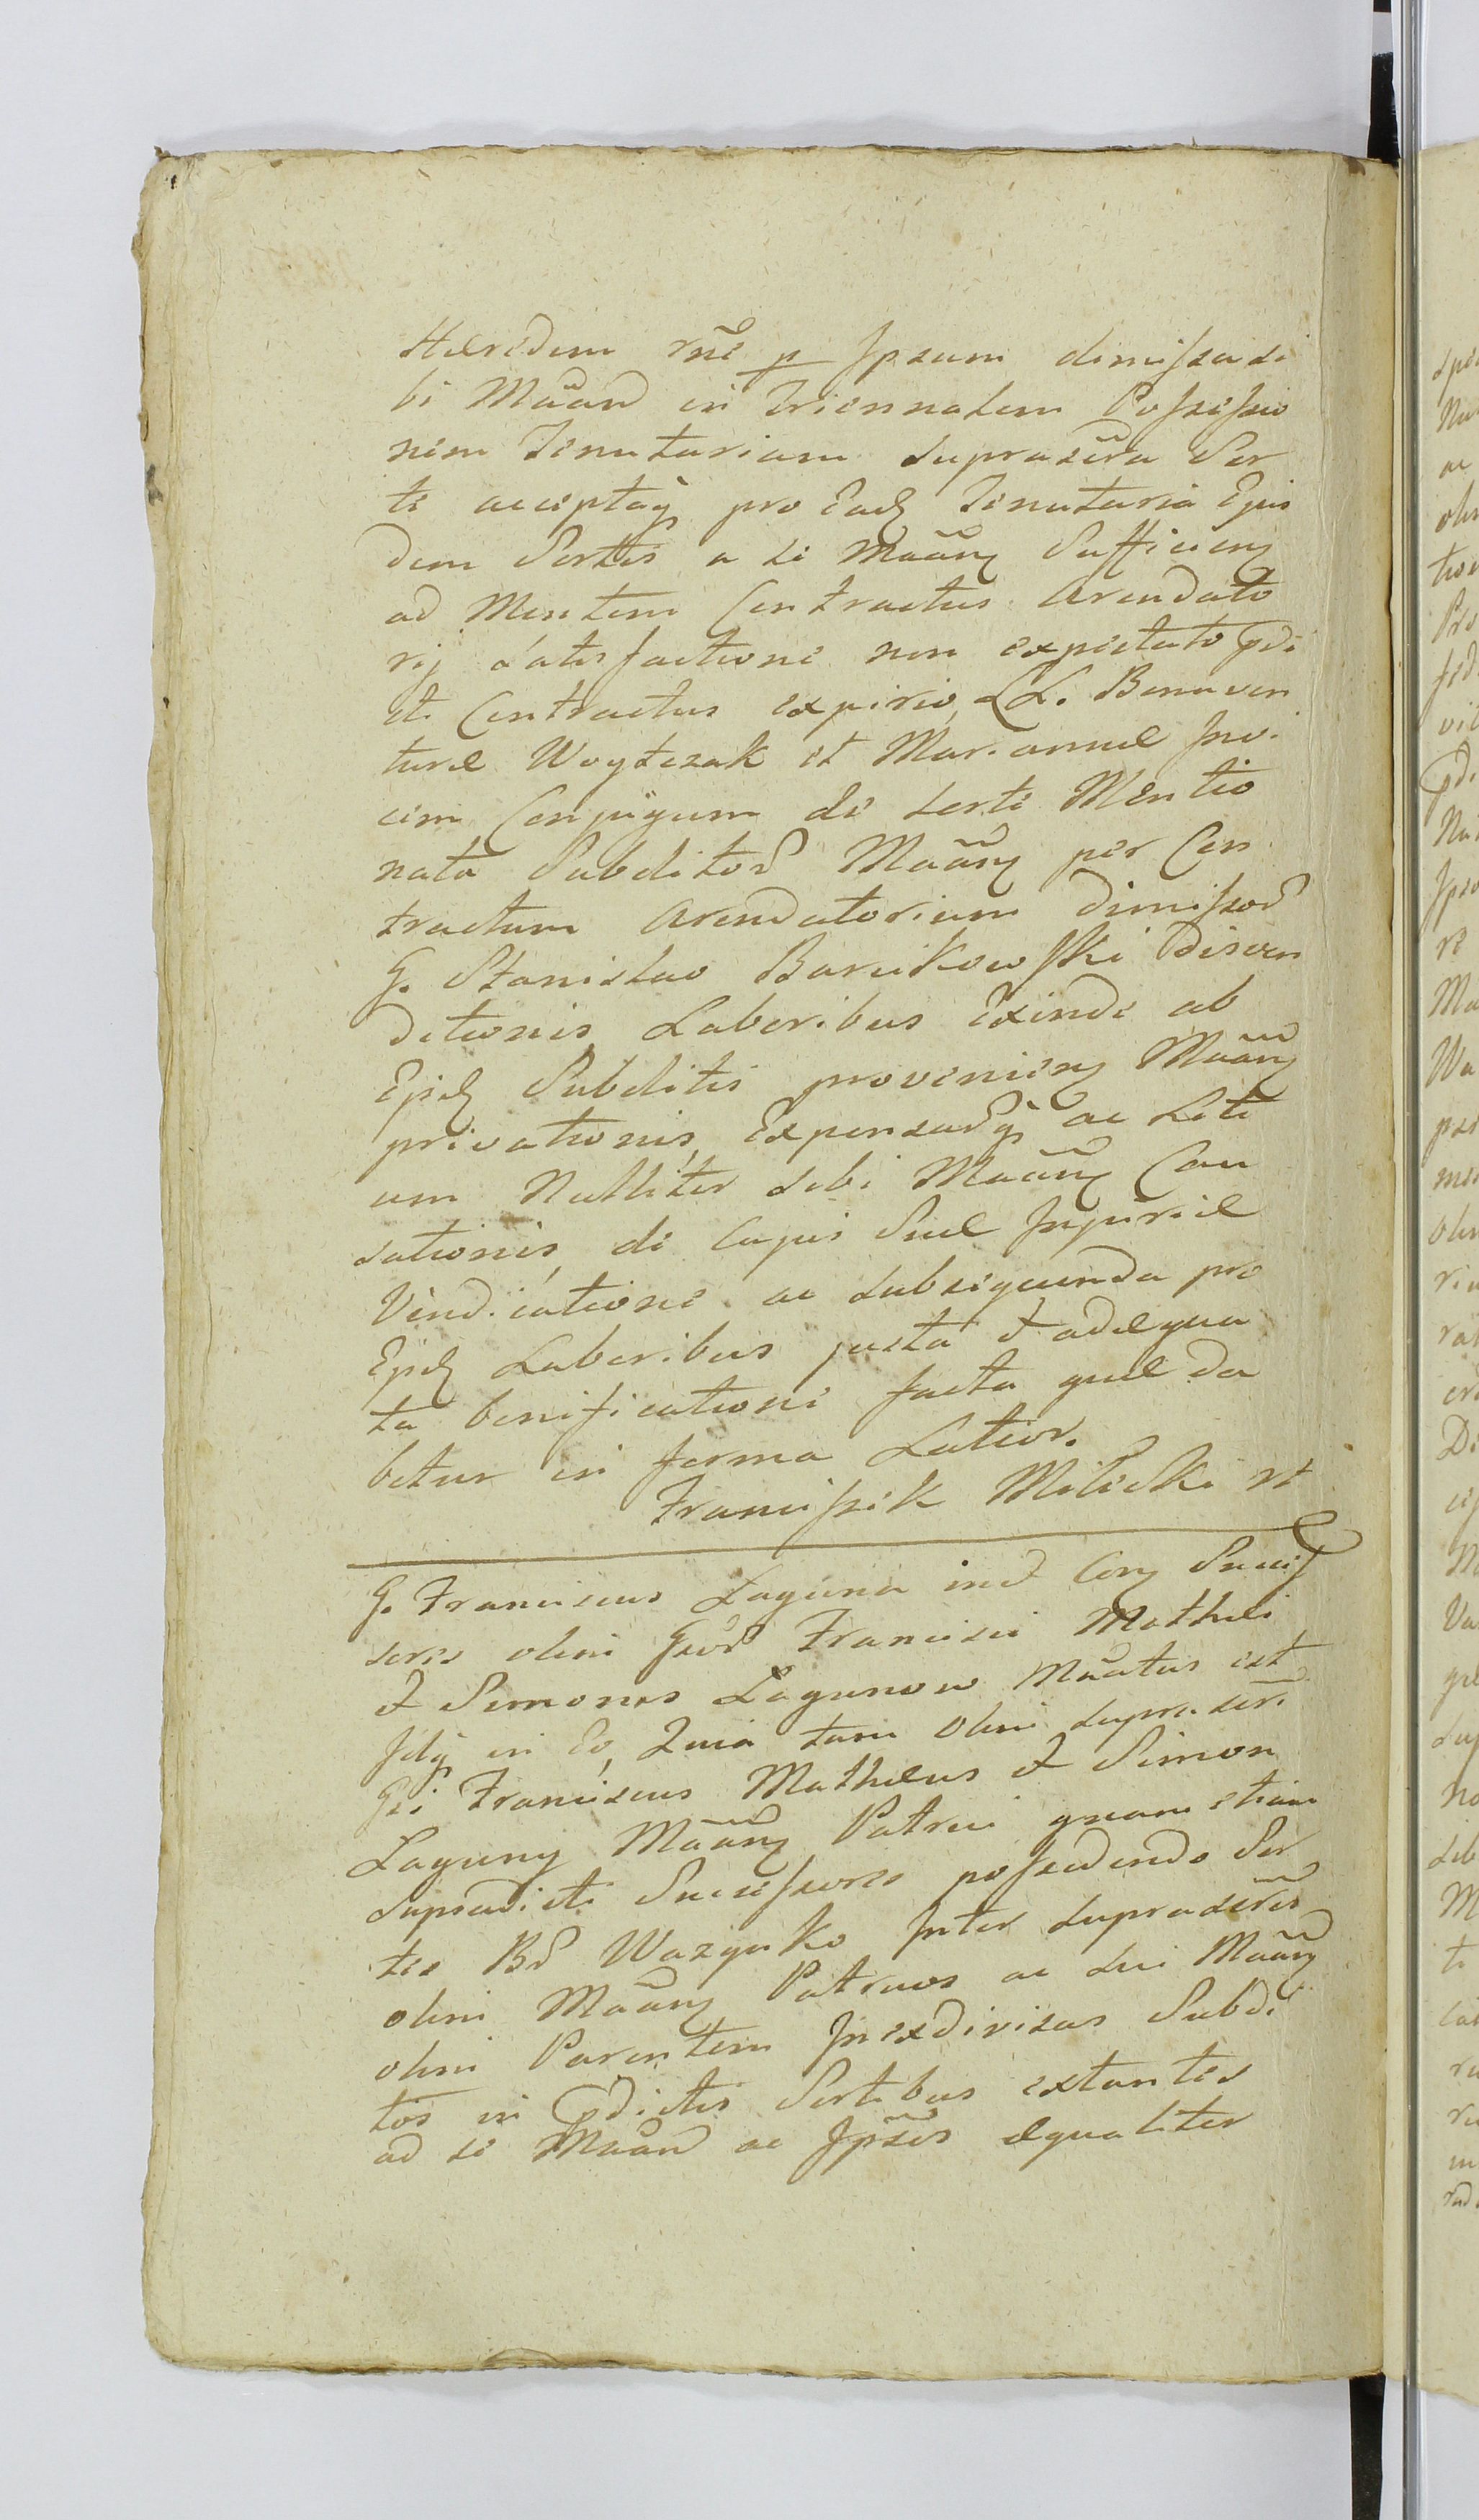 Hæredem rñe p Ipsum dimissa si
bi Mããnd in Triennalem Possessio
nem Tenutariam suprascr̃a Sor
te acceptaq; pro Ead Tenutaria Ejus
dem Sortis a se Mããn Sufficien
ad Mentem Contractus Arendato
rij Satisfactione non expectato pdi
cti Contractus expirio, LL. Bonaven
turæ Woytczak et Mariannæ Inv.
cim Conjugum de Sorte Mentio
nata Subditor Mããn per Con
tractum Arendatorium Dimissor
G. Stanislao Barcikowski Disven
ditionis Laboribus Exinde ab
Ejsd Subditis provenien Mããn
privationis, Expensarq; ac Liti
um Nulliter sibi Mããn Cau
sationis, de Cujus Suæ Injuriæ
Vindicatione ac subsequenda pro
Ejsd Laboribus justa et adæqua
ta bonificatione facta quæ da
bitur in forma Latior.
Franciszek Milewski rt
G. Franciscus Laguna ind Con Succes
sores olim Gsor Francisci Mathæi
et Simonis Lagunow Mãatus est
Idq; in Eo, Quia tam Olim suprascr̃i
Gsi Franciscus Mathæus et Simon
Laguny Mããn Patrui quam etiam
Supradicti Successores possidendo Sor
tes B Wazynko Inter suprascr̃os
olim Mããn Patruos ac sui Mããn
olim Parentem Inexdivisas Subdi
tos in pdictis Sortibus extantes
ad se Mããnd ac Ipsos æqualiter